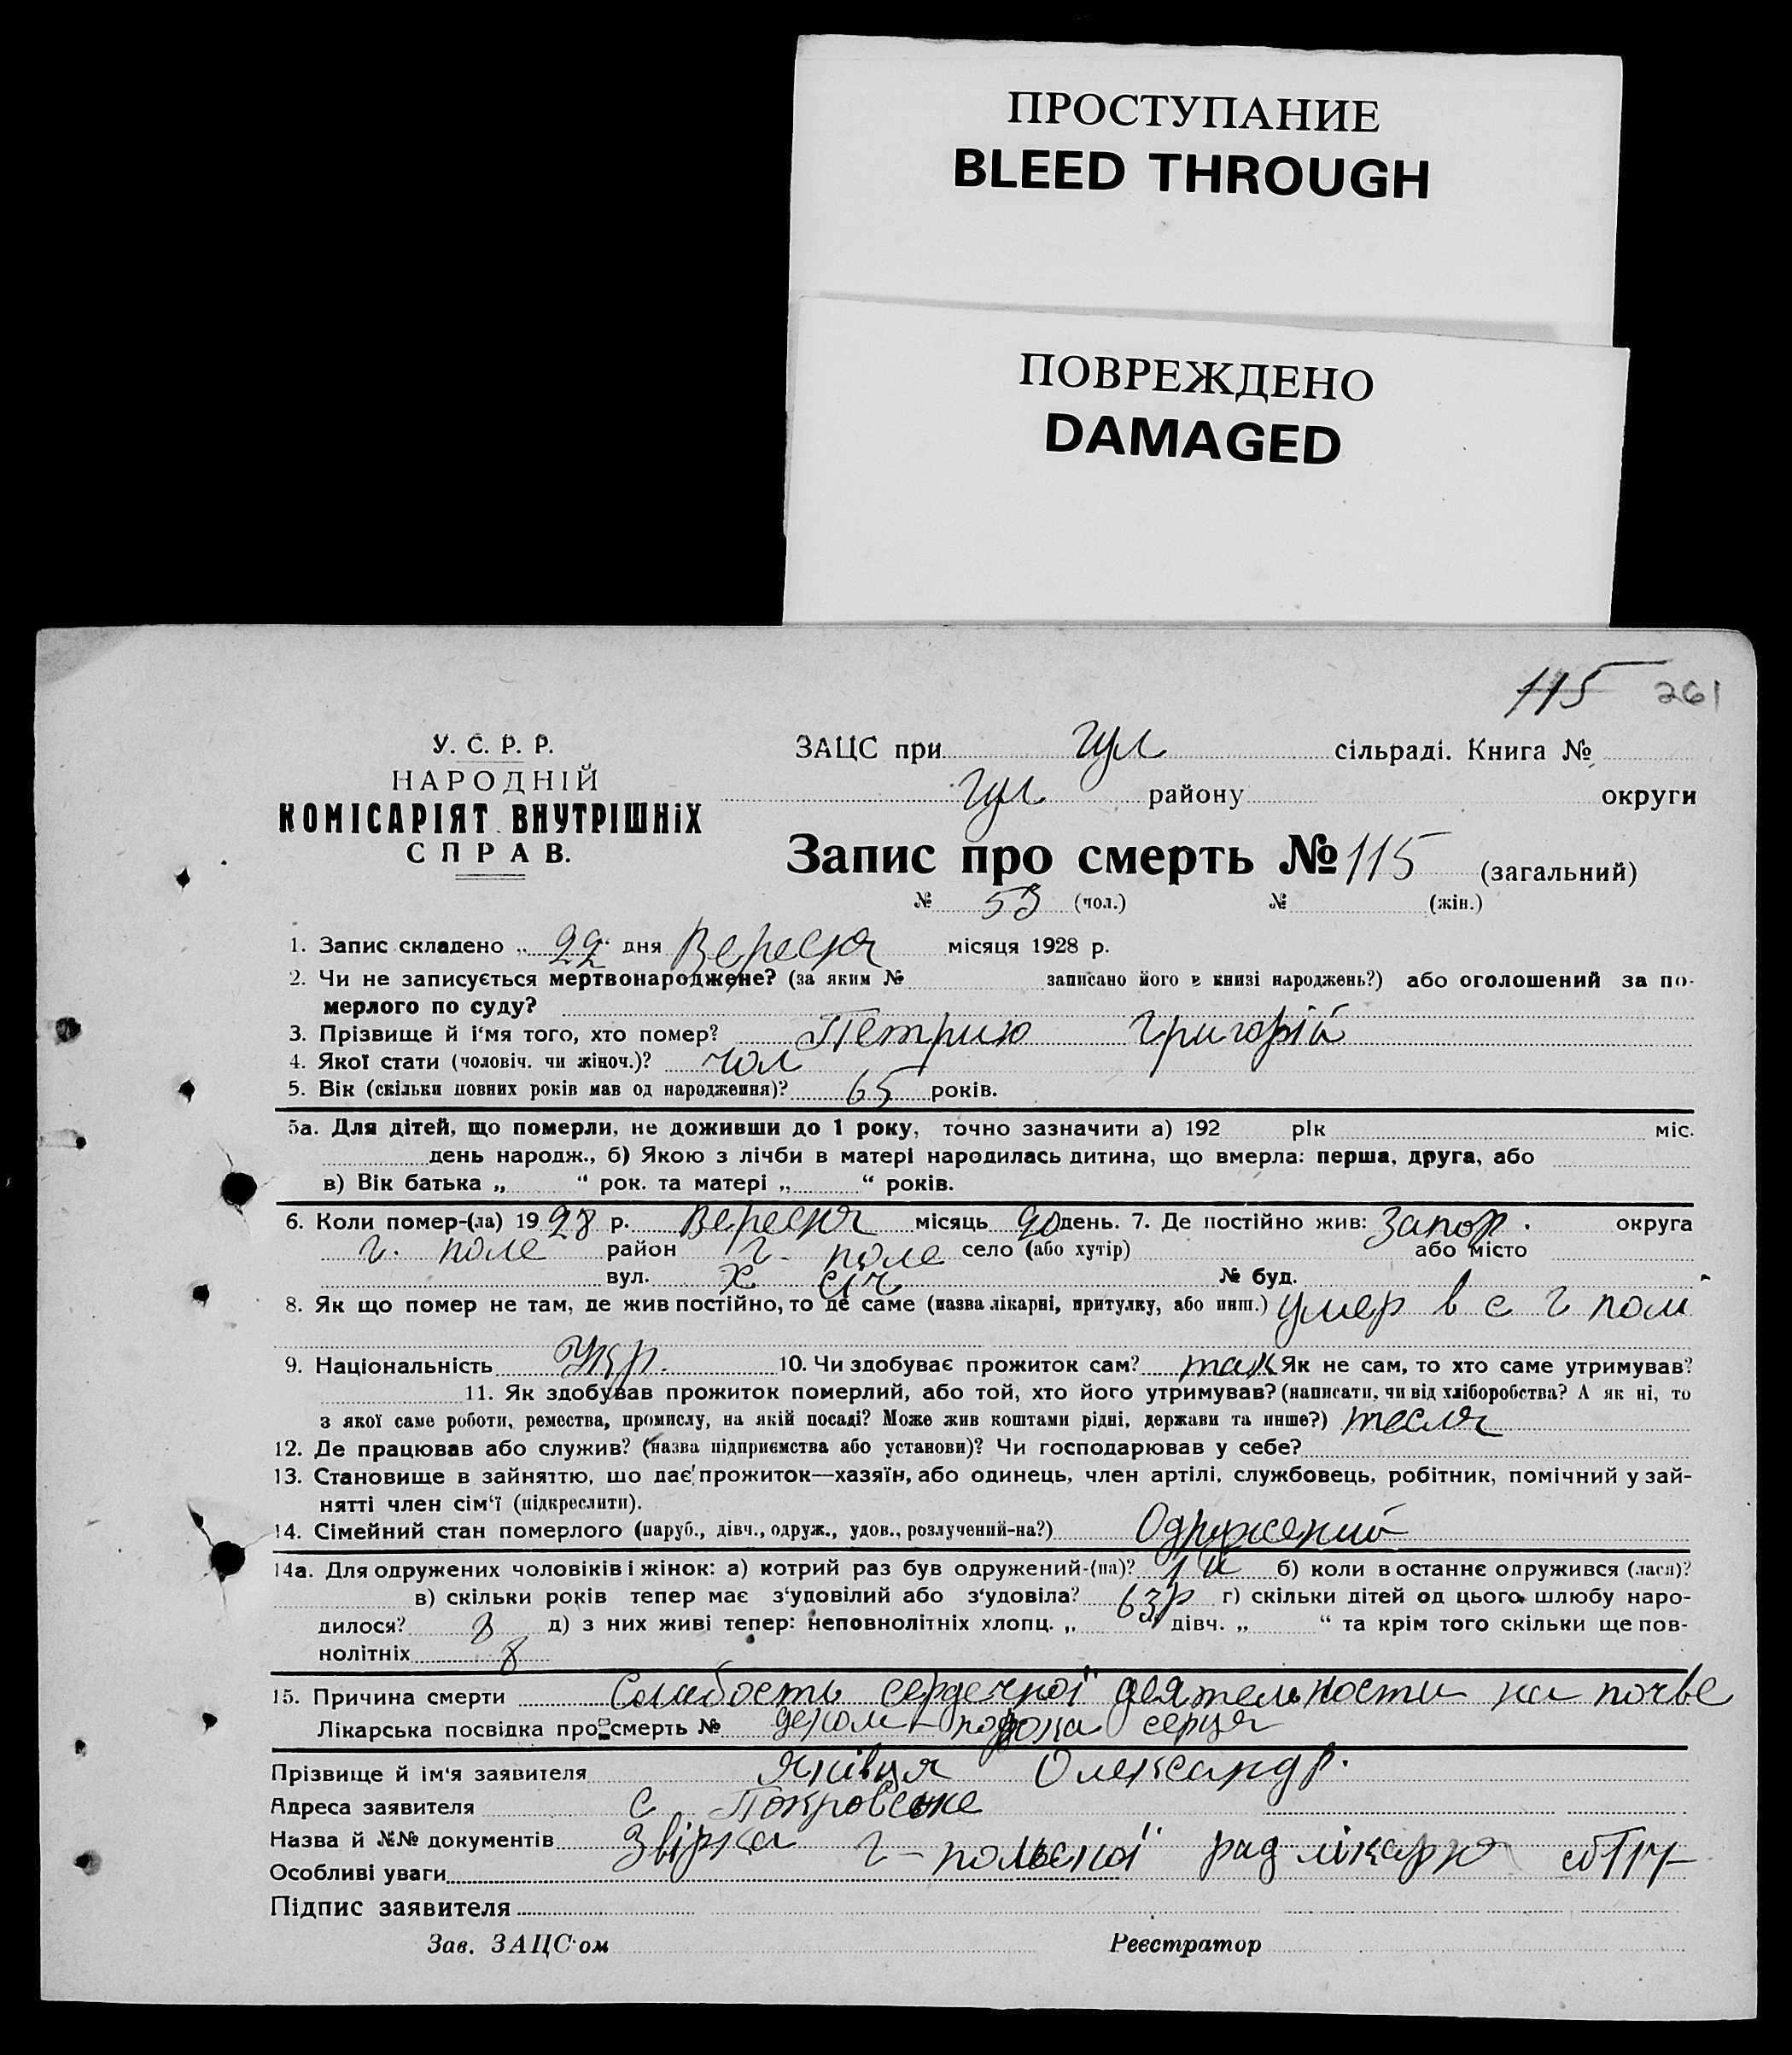 ПРОСТУПАНИЕ
BLEED THROUGH
ПОВРЕЖДЕНО
DAMAGED
115 261
У. С. Р. Р.
НАРОДНІЙ
КОМІСАРІЯТ ВНУТРІШНІХ
СПРАВ.
ЗАЦС при гул сільраді. Книга №
гул району округи
Запис про смерть № 115 (загальний)
№ 53 (чол.) № (жін.)
1. Запис складено „ 22 " дня Вересня місяця 1928 р.
2. Чи не записується мертвонароджене? (за яким № записано його в книзі народжень?) або оголошений за по-
мерлого по суду?
3. Прізвище й і'мя того, хто помер? Григорій
4. Якої стати (чоловіч. чи жіноч.)? чол
5. Вік (скільки повних років мав од народження)? 65 років.
5а. Для дітей, що померли, не доживши до 1 року, точно зазначити а) 192 рік міс.
день народж., б) Якою з лічби в матері народилась дитина, що вмерла: перша, друга, або
в) Вік батька „ “ рок. та матері „ “ років.
6. Коли помер-(ла) 1928 р. Вересня місяць 20 день. 7. Де постійно жив: Запор. округа
г. поле район г- поле село (або хутір) або місто
вул. х Січ № буд.
8. Як що помер не там, де жив постійно, то де саме (назва лікарні, притулку, або инш.) умер в с г поли
9. Національність Укр. 10. Чи здобуває прожиток сам? так Як не сам, то хто саме утримував?
11. Як здобував прожиток померлий, або той, хто його утримував? (написати, чи від хліборобства? А як ні, то
з якої саме роботи, ремества, промислу, на якій посаді? Може жив коштами рідні, держави та инше?) тесля
12. Де працював або служив? (назва підприємства або установи)? Чи господарював у себе?
13. Становище в зайняттю, що дає прожиток—хазяїн, або одинець, член артілі, службовець, робітник, помічний у зай-
нятті член сім'ї (підкреслити).
14. Сімейний стан померлого (паруб., дівч., одруж., удов., розлучений-на?) Одружений
14а. Для одружених чоловіків і жінок: а) котрий раз був одружений-(на)? 1 й б) коли в останнє одружився (лася)?
в) скільки років тепер має з'удовілий або з'удовіла? 63 р г) скільки дітей од цього шлюбу наро-
дилося? 8 д) з них живі тепер: неповнолітніх хлопц. „ " дівч. „ “ та крім того скільки ще пов-
нолітніх 8
15. Причина смерти Слабость сердечної деятельности на почве
Лікарська посвідка про смерть № серця
Прізвище й ім'я заявителя Яківця Олександр.
Адреса заявителя С Покровське
Назва й №№ документів Звірка г-польскої рад лікарю
Особливі уваги
Підпис заявителя
Зав. ЗАЦС'ом Реєстратор